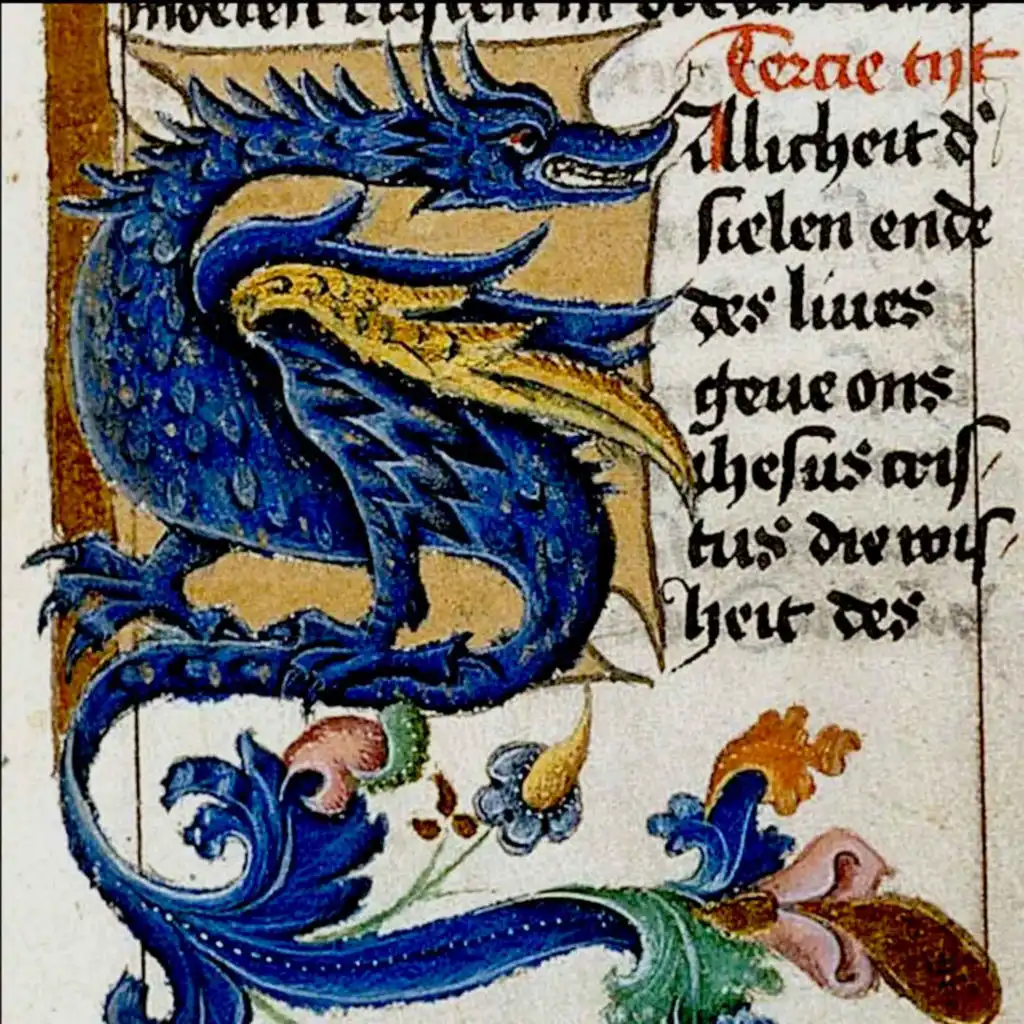 moeten rusten in
Tercie tijt
SAllicheit d'
sielen ende
des liues
geue ons
ihesus cris/
tus die wis/
heit des